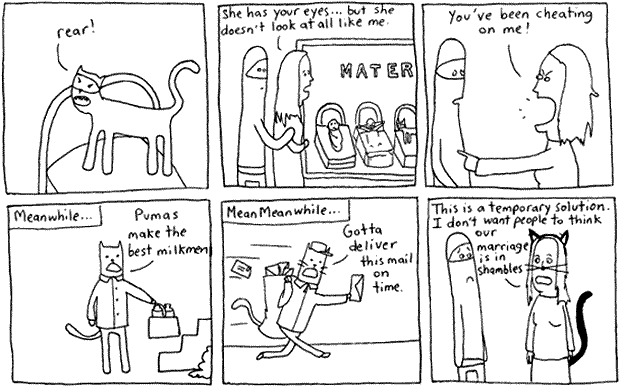 rear!
She has your eyes... but she
doesn't look at all like me.
MATER
You've been cheating
on me!
Meanwhile...
Pumas
make the
best milkmen
MeanMeanwhile...
Gotta
deliver
this mail
on
time.
This is a temporary solution.
I don't want people to think
our
marriage
is in
shambles